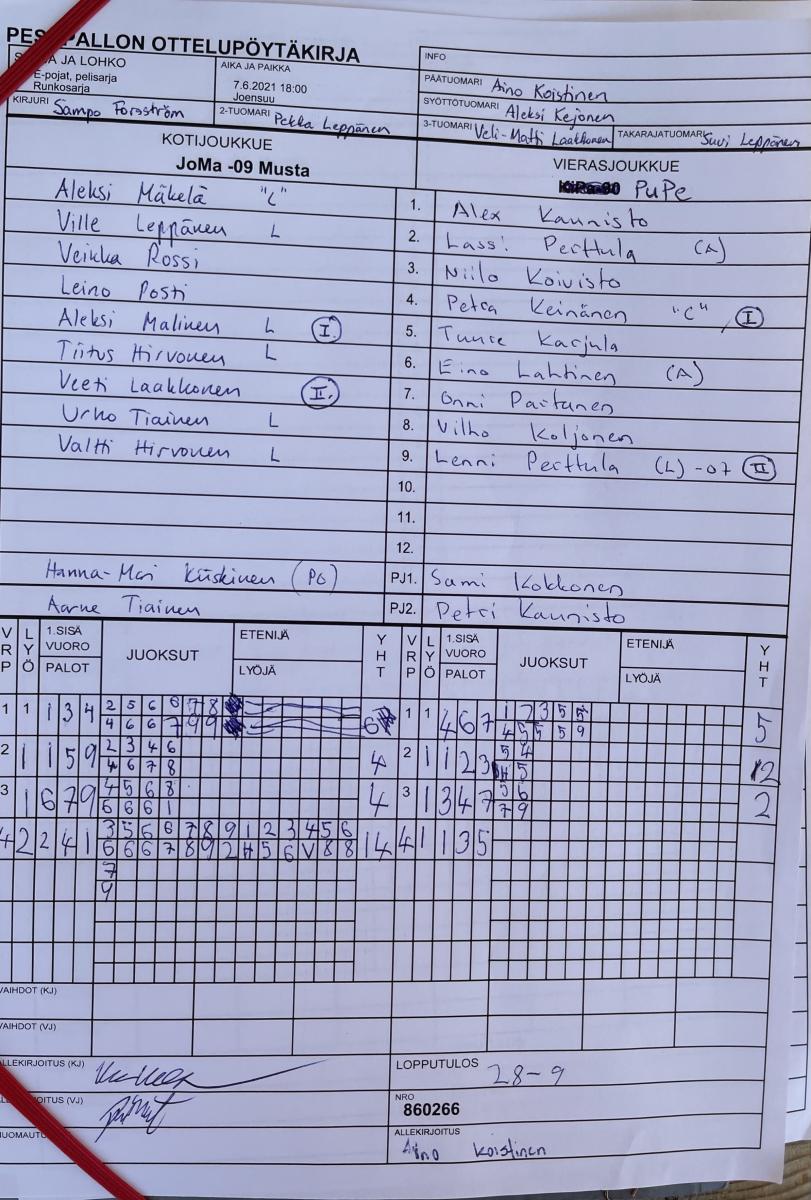 PESÄPALLON OTTELUPÖYTÄKIRJA
JA LOHKO
E-pojat, pelisarja
Runkosarja
AIKA JA PAIKKA
7.6.2021 18:00
Joensuu
INFO
PÄÄTUOMARI Aino Koistinen
SYÖTTÖTUOMARI Aleksi Kejonen
KIRJURI Sampo Forsström
2-TUOMARI Pekka Leppänen
3-TUOMARI Veli-Matti Laakkonen
TAKARAJATUOMARI Suvi Leppänen
KOTIJOUKKUE
JoMa -09 Musta
VIERASJOUKKUE
PuPe
Aleksi Mäkelä "C" 1. Alex Kaunisto
Ville Leppänen L 2. Lassi Perttula (A)
Veikka Rossi 3. Niilo Koivisto
Leino Posti 4. Petra Keinänen "C" I
Aleksi Malinen L I. 5. Tuure Karjula
Tiitus Hirvonen L 6. Eino Lahtinen (A)
Veeti Laakkonen II. 7. Onni Partanen
Urho Tiainen L 8. Vilho Koljonen
Valtti Hirvonen L 9. Lenni Perttula (L) -07 II
10.
11.
12.
Hanna-Mari Kiiskinen PJ1. Sami Kokkonen
Aarne Tiainen PJ2. Petri Kaunisto
VRP LYÖ 1.SISÄ VUORO PALOT JUOKSUT ETENIJÄ LYÖJÄ YHT VRP LYÖ 1.SISÄ VUORO PALOT JUOKSUT ETENIJÄ LYÖJÄ YHT
1 1 1 3 4 2 5 6 6 7 8 6 1 1 4 6 7 1 2 3 5 5 5
4 6 6 7 9 9 4 5 5 5 9
2 1 1 5 9 2 3 4 6 4 2 1 1 2 3 5 4 2
4 6 7 8 5
3 1 6 7 9 4 5 6 8 4 3 1 3 4 7 5 6 2
6 6 6 1 7 9
4 2 2 4 1 3 5 6 6 7 8 9 1 2 3 4 5 6 14 4 1 1 3 5
6 6 6 7 8 9 2 H 5 6 V 8 8
7
9
VAIHDOT (KJ)
VAIHDOT (VJ)
ALLEKIRJOITUS (KJ)
LOPPUTULOS 28-9
NRO
860266
ALLEKIRJOITUS
Aino Koistinen